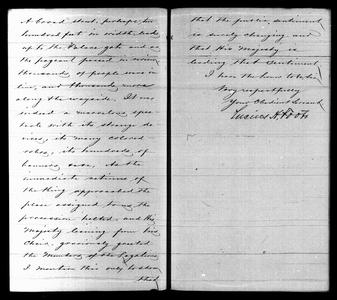 A broad street, perhaps two
hundred feet in width, leads
up to the Palace gate and as
the pageant passed in review
thousands of people were in
line, and thousands more
along the wayside. It was
indeed a marvelous, spec-
tacle with its strange de-
vices, its many colored
robes, its hundreds of
banners, etc. As the
immediate retinue of
the King approached the
place assigned to us, the
procession halted, and His
Majesty leaning from his
Chair, graciously greeted
the Members of the Legation.
I mention this only to show
that
that the public sentiment
is surely changing and
that His Majesty is
leading that sentiment
I have the honor to be,
Very respectfully
Your Obedient Servant
Lucius H. Foote